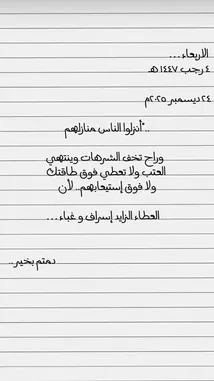 الاربعاء...
٤ رجب ١٤٤٧ هـ
٢٤ ديسمبر ٢٠٢٥م
.."أنزلوا الناس منازلهم
وراح تخف الشرهات وينتهي
العتب ولا تعطي فوق طاقتك
ولا فوق إستيعابهم.. لأن
العطاء الزايد إسراف و غباء...
دمتم بخير..